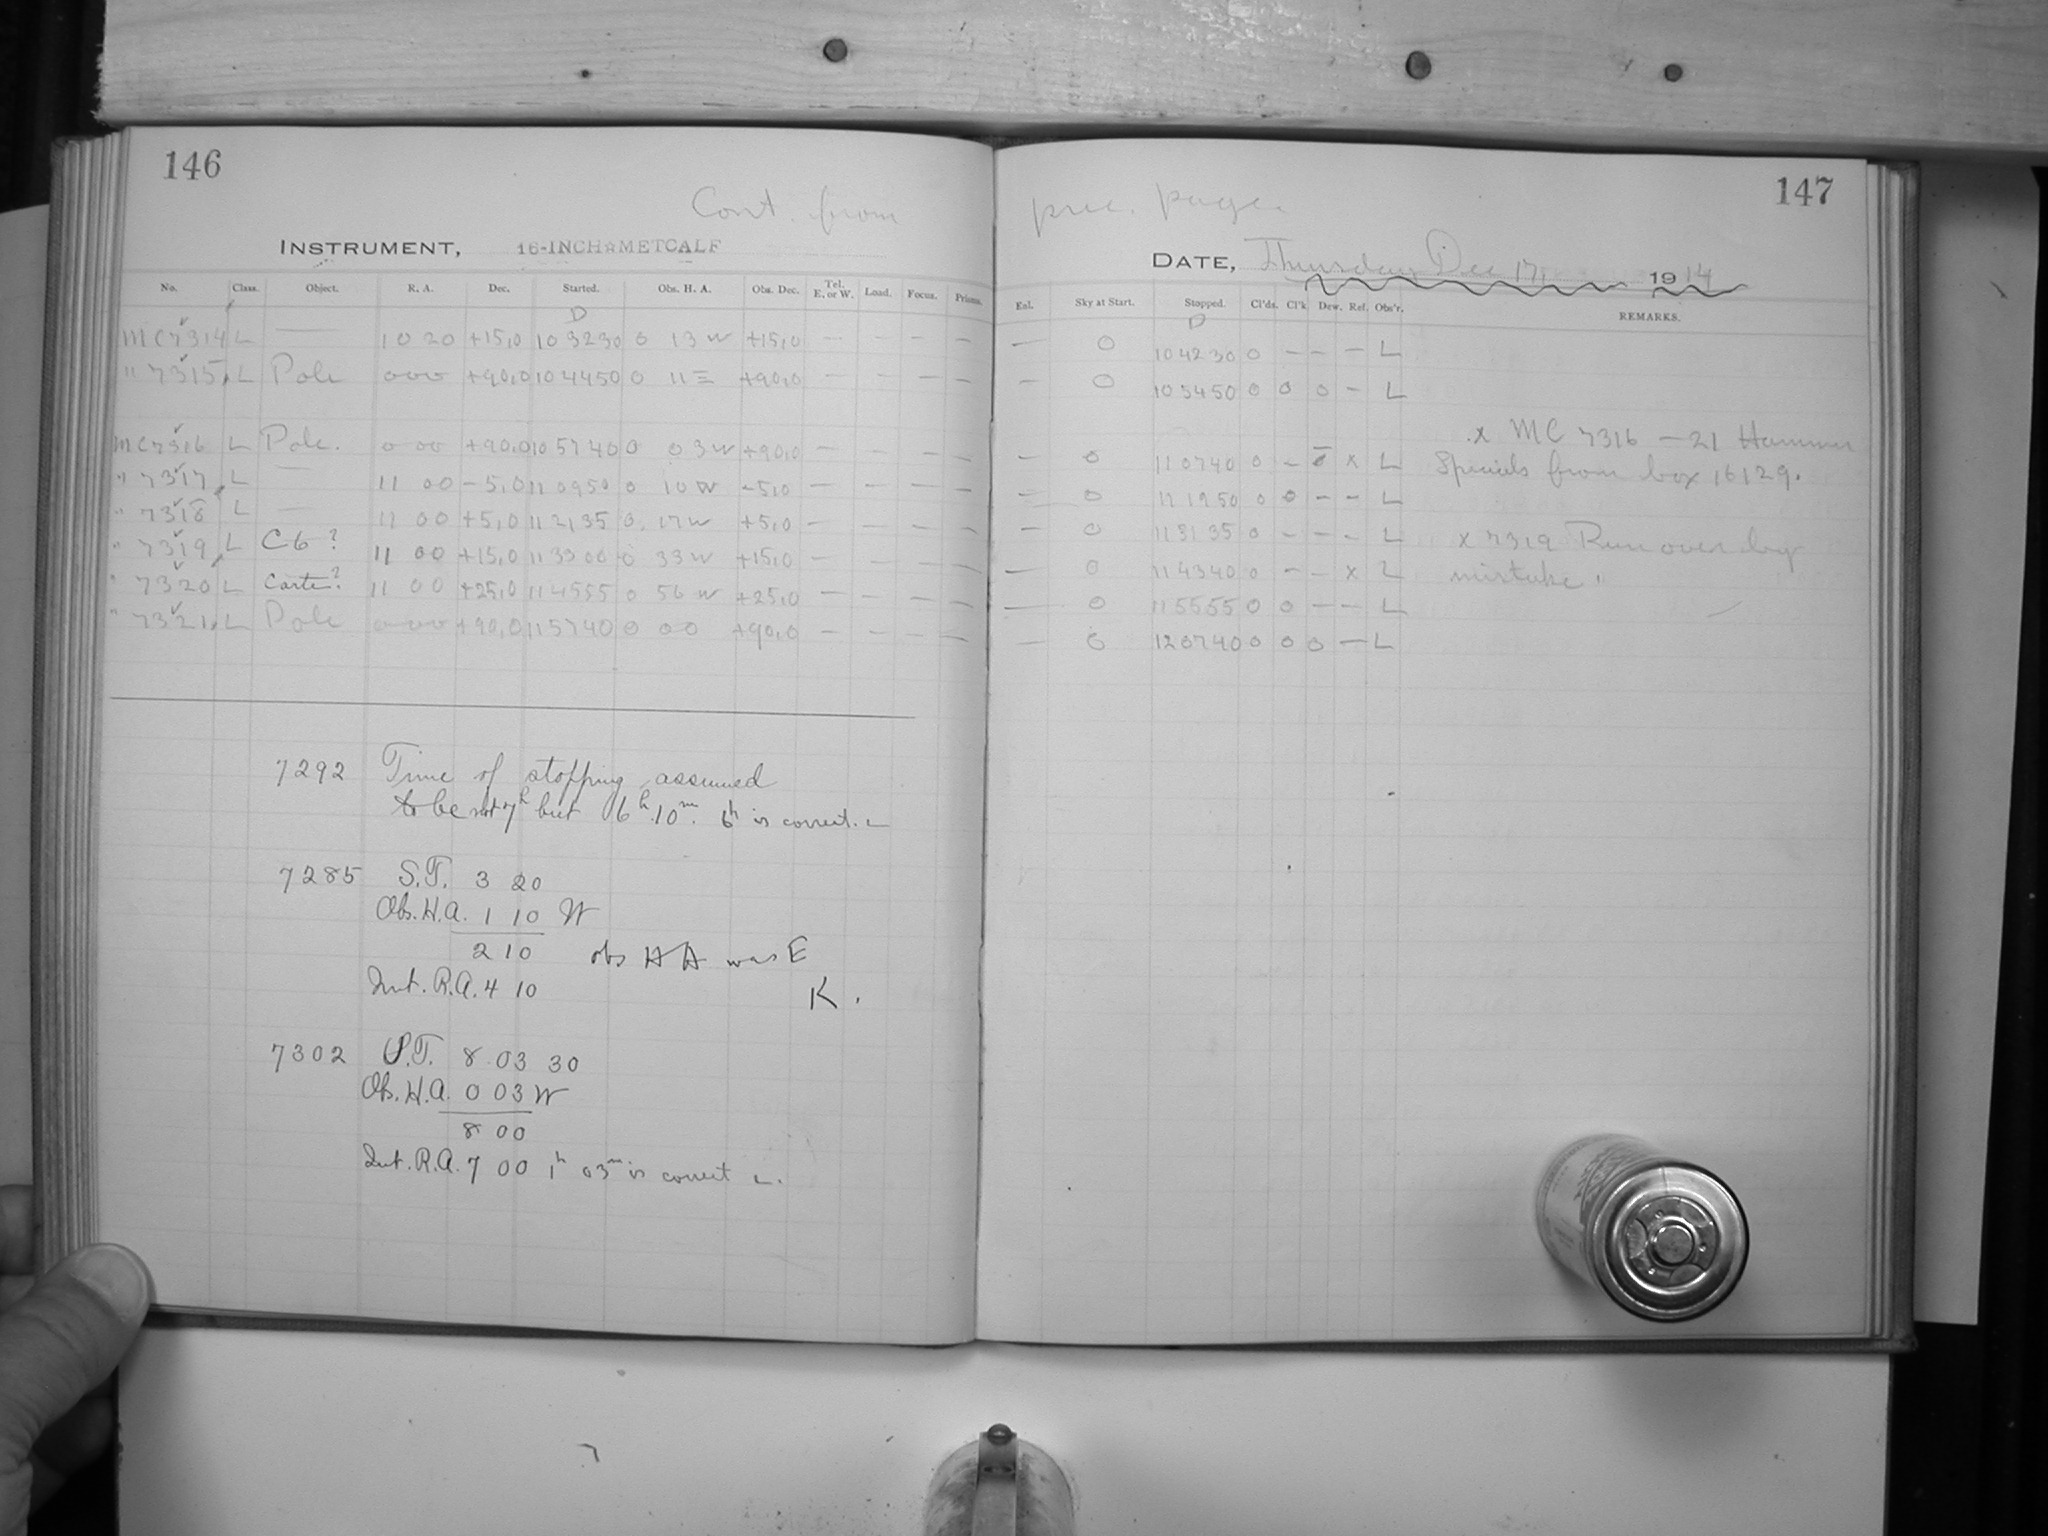 146
Cont. from
INSTRUMENT, 16-INCH☆METCALF
No. Class. Object. R. A. Dec. Started. Obs. H. A. Obs. Dec. Tel. E. or W. Load. Focus. Prisms.
D
MC 7314 L — 10 20 +15,0 10 32 30 0 13 W +15,0 — — — —
" 7315 L Pole 0 00 +90,0 10 44 50 0 11 E +90,0 — — — —
MC 7316 L Pole. 0 00 +90,0 10 57 40 0 03 W +90,0 — — — —
" 7317 L — 11 00 -5,0 11 09 50 0 10 W -5,0 — — — —
" 7318 L — 11 00 +5,0 11 21 35 0 17 W +5,0 — — — —
" 7319 L C6? 11 00 +15,0 11 33 00 0 33 W +15,0 — — — —
" 7320 L Carte? 11 00 +25,0 11 45 55 0 56 W +25,0 — — — —
" 7321 L Pole 0 00 +90,0 11 57 40 0 00 +90,0 — — — —
7292 Time of stopping assumed
to be not 7h but 6h 10m. 6h is correct. L
7285 S.T. 3 20
Obs. H.A. 1 10 W
2 10 obs H A was E
Int. R.A. 4 10 K.
7302 S.T. 8 03 30
Obs. H.A. 0 03 W
8 00
Int. R.A. 7 00 1h 03m is correct L.
147
prec. page.
DATE, Thursday Dec 17, 1914
Enl. Sky at Start. Stopped. Cl'ds. Cl'k Dew. Ref. Obs'r. REMARKS.
D
— 0 10 42 30 0 — — — L
— 0 10 54 50 0 0 0 — L
x MC 7316 — 21 Hammer
— 0 11 07 40 0 — 0 x L Specials from box 16129.
— 0 11 19 50 0 0 — — L
— 0 11 31 35 0 — — — L x 7319 Run over by
— 0 11 43 40 0 — — x L mistake"
— 0 11 55 55 0 0 — — L
— 0 12 07 40 0 0 0 — L